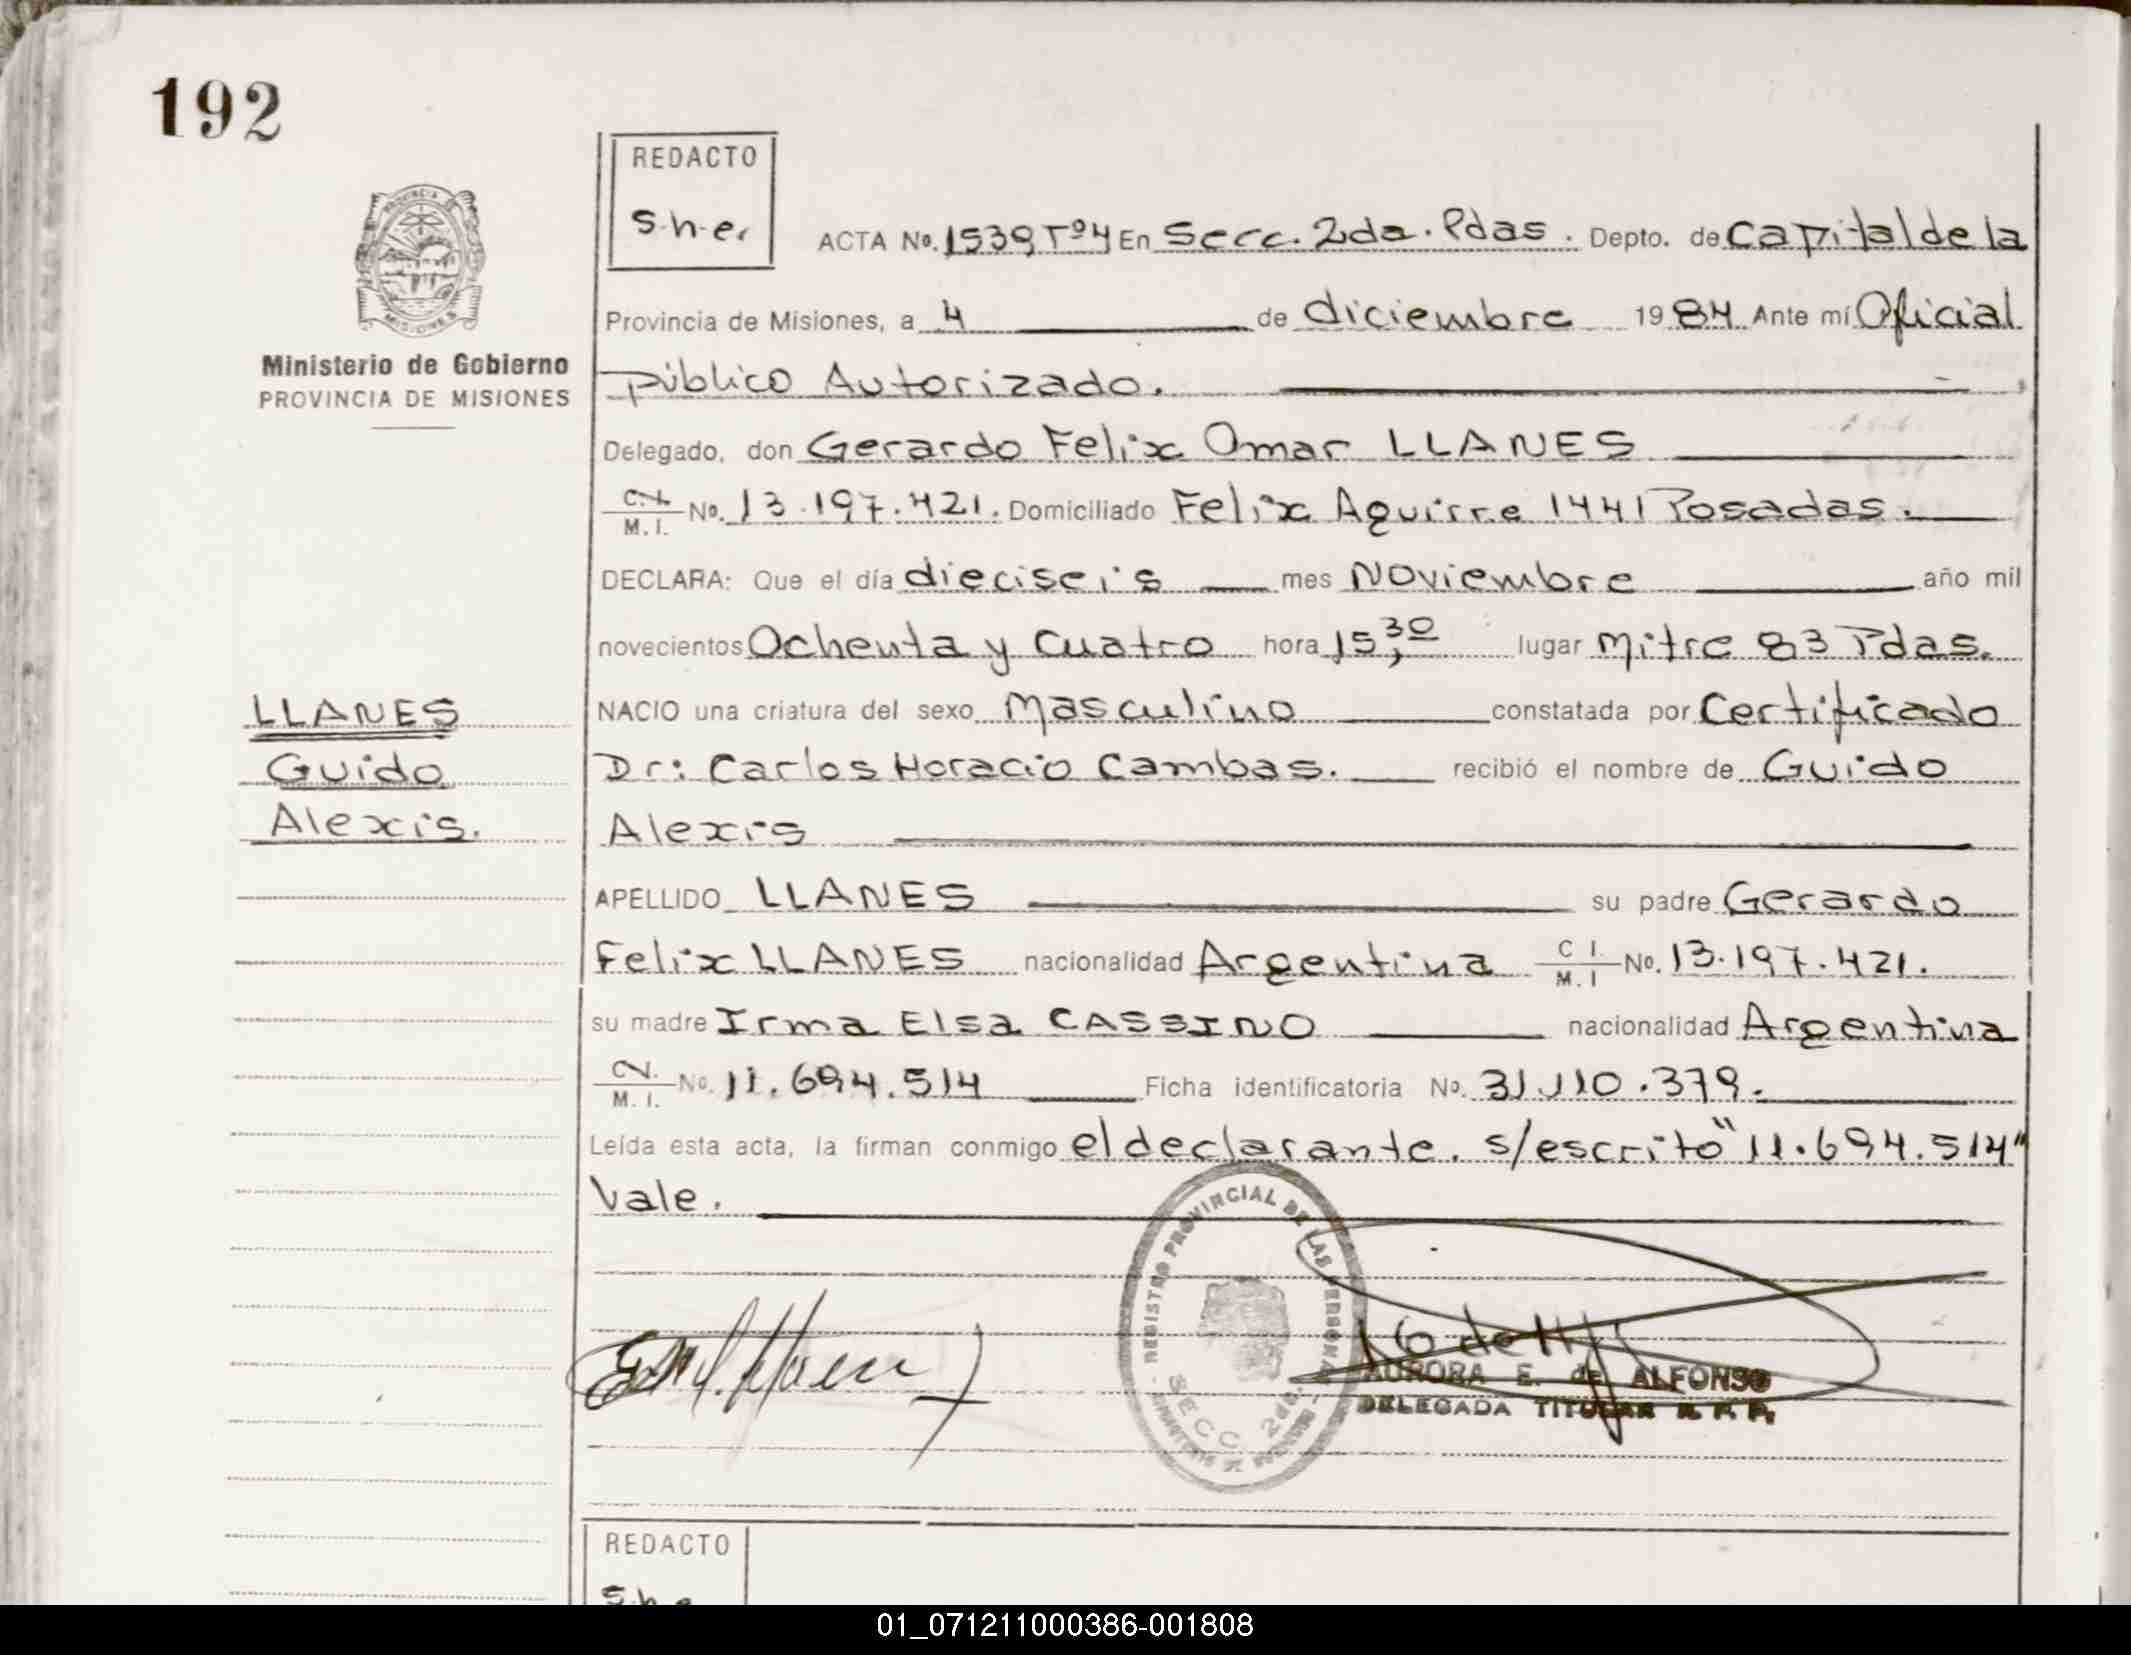 192
REDACTO
S.h.e.
ACTA No. 1539 Tº4 En Secc. 2da. Pdas. Depto. de Capital de la
PROVINCIA DE
MISIONES
Provincia de Misiones, a 4 de diciembre 1984 Ante mí Oficial
Ministerio de Gobierno
PROVINCIA DE MISIONES
público Autorizado.
Delegado, don Gerardo Felix Omar LLANES
C.I. M.I. No. 13.197.421. Domiciliado Felix Aguirre 1441 Posadas.
DECLARA: Que el día dieciseis mes Noviembre año mil
novecientos Ochenta y Cuatro hora 15,30 lugar Mitre 83 Pdas.
LLANES
Guido
Alexis.
NACIO una criatura del sexo Masculino constatada por Certificado
Dr: Carlos Horacio Cambas. recibió el nombre de Guido
Alexis
APELLIDO LLANES su padre Gerardo
Felix LLANES nacionalidad Argentina C I. M. I No. 13.197.421.
su madre Irma Elsa CASSINO nacionalidad Argentina
C.I. M. I. No. 11.694.514 Ficha identificatoria No. 31.110.379.
Leída esta acta, la firman conmigo el declarante. s/escrito "11.694.514"
Vale.
REGISTRO PROVINCIAL DE LAS PERSONAS
SECC. 2da.
AURORA E. de ALFONSO
DELEGADA TITULAR R. P. P.
REDACTO
S.h.e
01_071211000386-001808